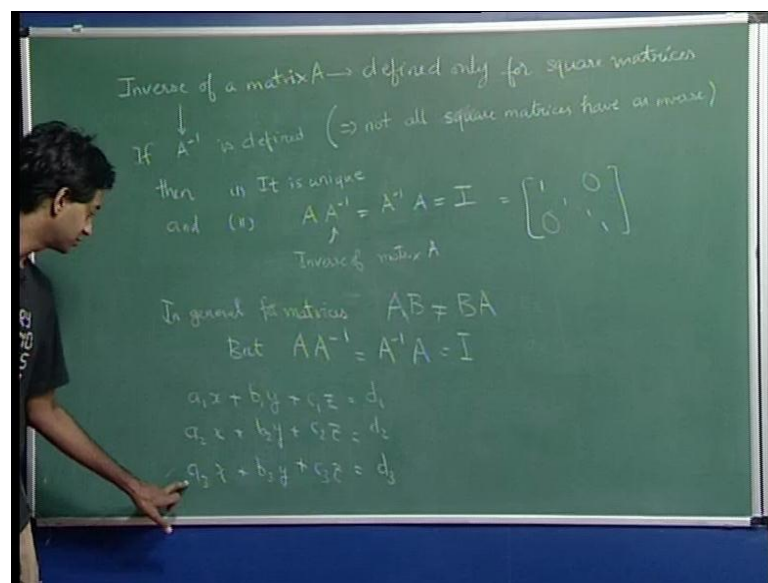 Inverse of a matrix A → defined only for square matrices
↓
If A⁻¹ is defined (⇒ not all square matrices have an inverse)
then (i) It is unique
and (ii) A A⁻¹ = A⁻¹ A = I = [1 0 0 1 1 1]
↑
Inverse of matrix A
In general for matrices AB ≠ BA
But AA⁻¹ = A⁻¹ A = I
a₁x + b₁y + c₁z = d₁
a₂x + b₂y + c₂z = d₂
a₃x + b₃y + c₃z = d₃